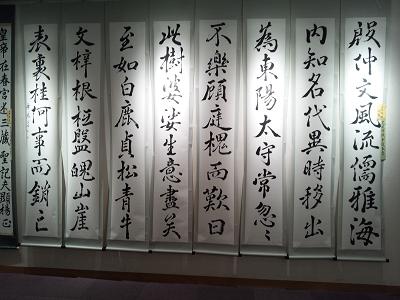 殷仲文風流儒雅海
內知名代異時移出
為東陽太守常忽々
不樂顧庭槐而歎曰
此樹婆娑生意盡矣
至如白鹿貞松青牛
文梓根柢盤魄山崖
表裏桂何事而銷亡
皇帝在春宮述三藏聖記天顯揚正